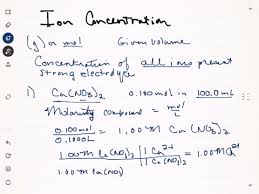 Ion Concentration
(g) or mol Given volume
Concentration of all ions present
strong electrolyte
1) Ca(NO₃)₂ 0.100mol in 100.0mL
Molarity compound = mol/L
0.100mol/0.1000L = 1.00M Ca(NO₃)₂
1.00M Ca(NO₃)₂ | 1 Ca²⁺/1 Ca(NO₃)₂ = 1.00M Ca²⁺
1.00M Ca(NO₃)₂